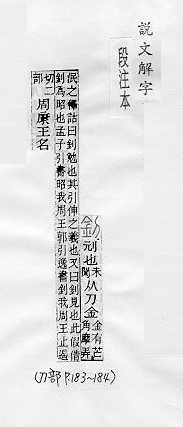 說文解字
段注本
釗刓也未聞从刀金金有芒角摩弄
泯之釋詁曰釗勉也其引伸之義也又曰釗見也此假借
釗為昭也孟子引書昭我周王郭引逸書釗我周王止遙
切二部周康王名
(刀部 P.183~184)